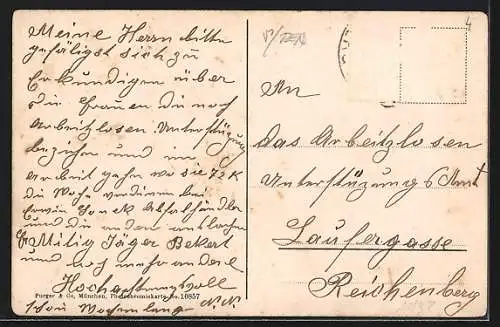 Meine Herrn bitte
gefäligst sich zu
Erkundigen über
die Frauen die noch
Arbeitzlosen Unterstüzung
beziehen und in
arbeit gehn wo sie 72 K
die Woche verdinen bei
Erwin Abfalhändler
und die anden
Fr Milig Jäger Bekert
und noch mehr andere
Hochachtungsvoll
schon Wochenlang N.N.
Purger & Co., München, Photochromiekarte No. 10857
4
An
das Arbeitzlosen
Unterstüzungs Amt
Laufergasse
Reichenberg